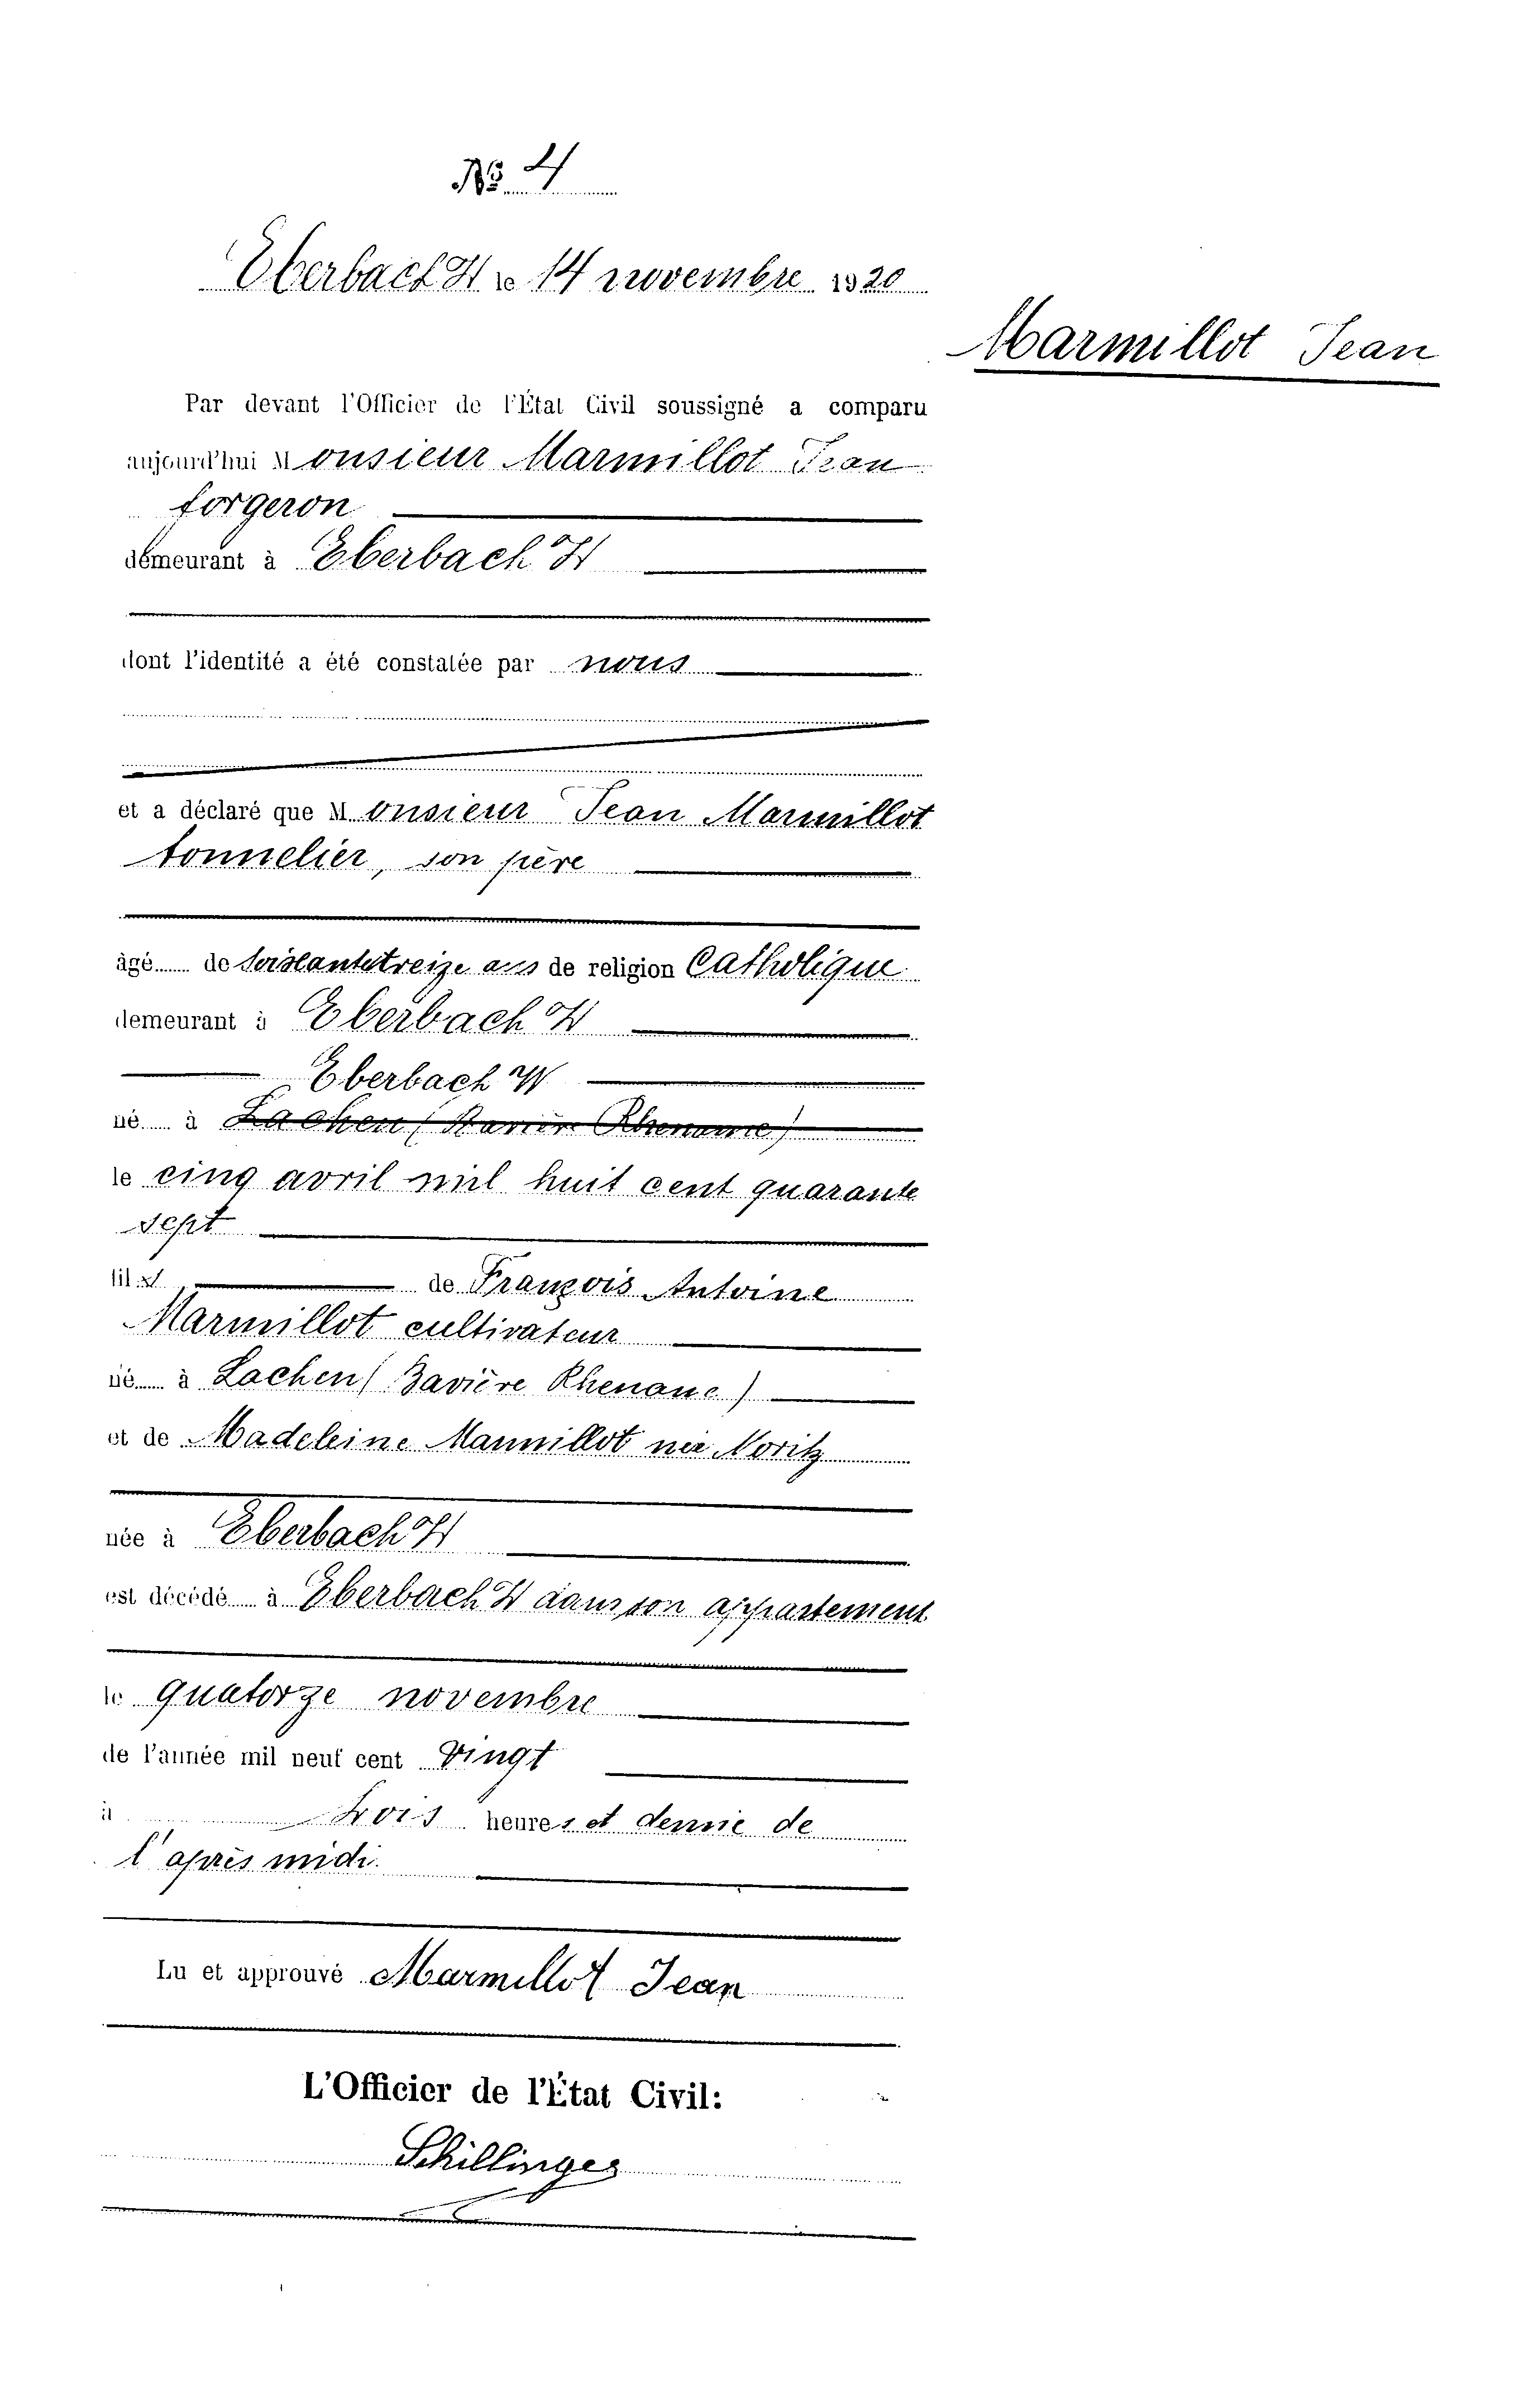 No. 4
Eberbach W le 14 novembre 1920
Marmillot Jean
Par devant l'Officier de l'État Civil soussigné a comparu
aujourd'hui Monsieur Marmillot Jean
forgeron
demeurant à Eberbach W
dont l'identité a été constatée par nous
et a déclaré que Monsieur Jean Marmillot
tonnelier, son père
âgé de soixante treize ans de religion Catholique
demeurant à Eberbach W
Eberbach W
né à Lachen (Bavière Rhenane)
le cinq avril mil huit cent quarante
sept
fils de François Antoine
Marmillot cultivateur
né à Lachen (Bavière Rhenane)
et de Madeleine Marmillot née Moritz
née à Eberbach W
est décédé à Eberbach W dans son appartement
le quatorze novembre
de l'année mil neuf cent vingt
à trois heures et demie de
l'après midi.
Lu et approuvé Marmillot Jean
L'Officier de l'État Civil:
Schillinger